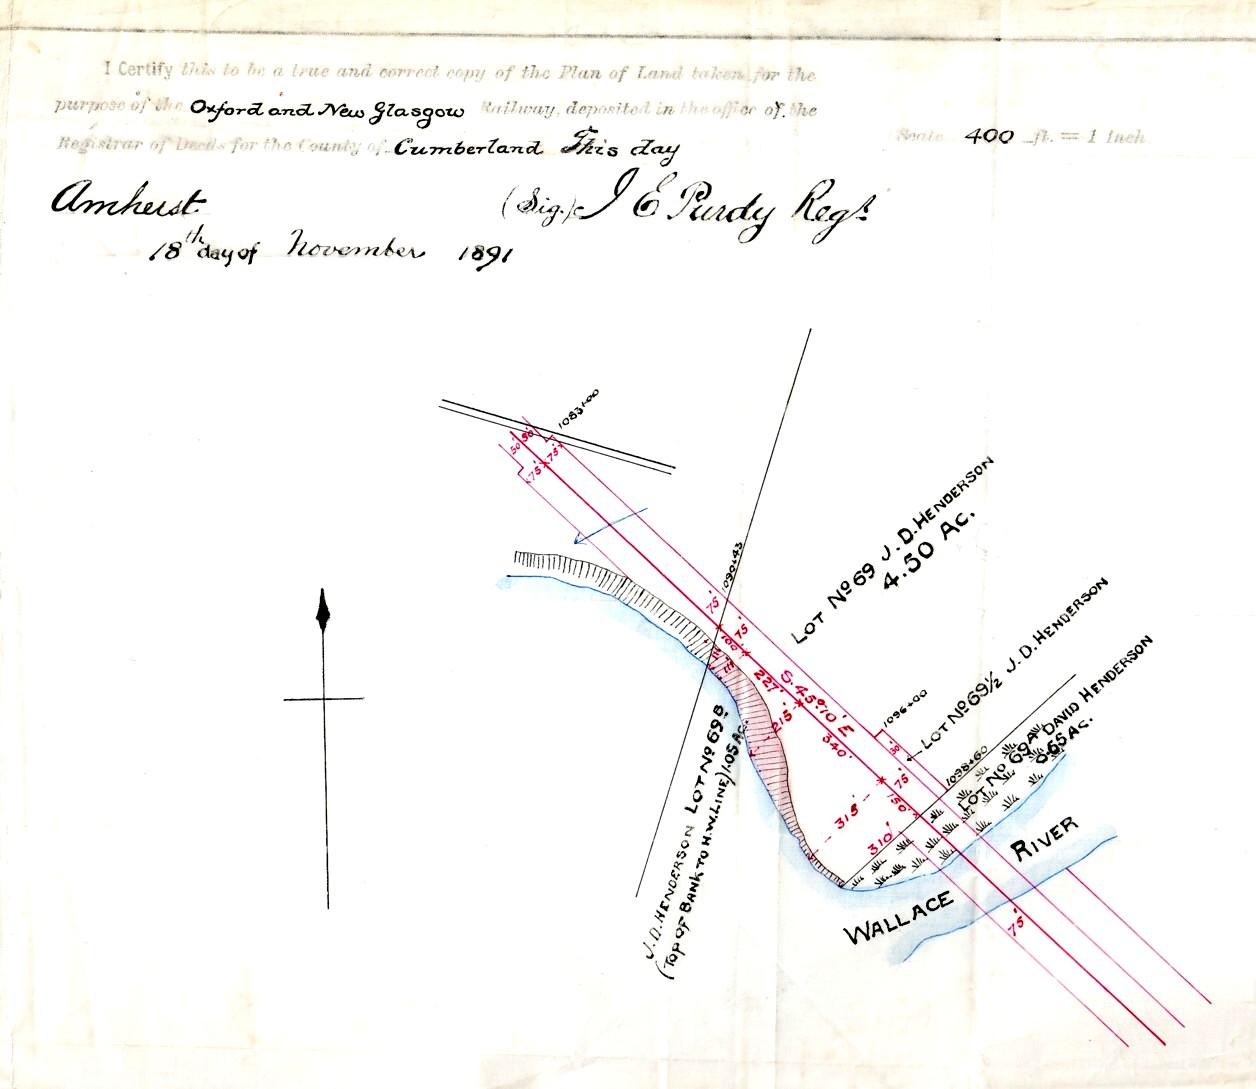 I Certify this to be a true and correct copy of the Plan of Land taken for the
purpose of the Oxford and New Glasgow Railway, deposited in the office of the
Registrar of Deeds for the County of Cumberland This day
Scale 400 ft. = 1 Inch
Amherst (Sig.) I E Purdy Regr
18th day of November 1891
1083+00
50' 50'
75' 75'
1090+43
LOT No 69 J. D. HENDERSON
4.50 Ac.
75'
75'
100'
227'
S. 45° 10' E
215'
340'
1096+00
30'
LOT No 69½ J. D. HENDERSON
1098+60
LOT No 69A DAVID HENDERSON
0.65 Ac.
75'
150'
315'
310'
J. D. HENDERSON LOT No 69B
(TOP OF BANK TO H.W. LINE) 1.05 Ac.
WALLACE RIVER
75'